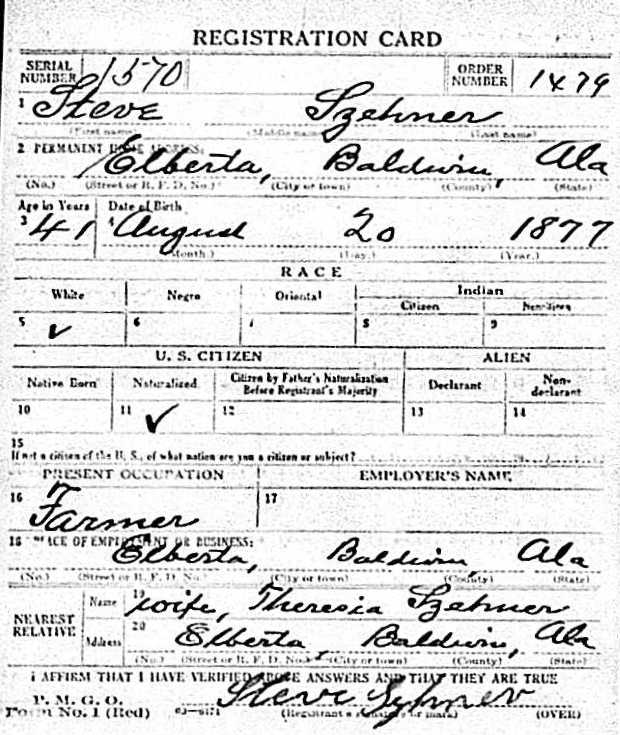 REGISTRATION CARD
SERIAL NUMBER 1570 ORDER NUMBER 1479
1 Steve Szehner
(First name) (Middle name) (Last name)
2 PERMANENT HOME ADDRESS:
Elberta, Baldwin, Ala
(No.) (Street or R. F. D. No.) (City or town) (County) (State)
Age in Years Date of Birth
3 41 4 August 20 1877
(Month.) (Day.) (Year.)
RACE
White Negro Oriental Indian
Citizen
5 ✓ 6 7 8 9
U. S. CITIZEN ALIEN
Native Born Naturalized Citizen by Father's Naturalization Before Registrant's Majority Declarant Non-declarant
10 11 ✓ 12 13 14
15
If not a citizen of the U. S., of what nation are you a citizen or subject?
PRESENT OCCUPATION EMPLOYER'S NAME
16 Farmer 17
18 PLACE OF EMPLOYMENT OR BUSINESS:
Elberta, Baldwin, Ala
(No.) (Street or R. F. D. No.) (City or town) (County) (State)
NEAREST RELATIVE Name 19 wife, Theresia Szehner
Address 20 Elberta, Baldwin, Ala
(No.) (Street or R. F. D. No.) (City or town) (County) (State)
I AFFIRM THAT I HAVE VERIFIED ABOVE ANSWERS AND THAT THEY ARE TRUE
P. M. G. O.
Form No. 1 (Red) Steve
(Registrant's signature or mark) (OVER)